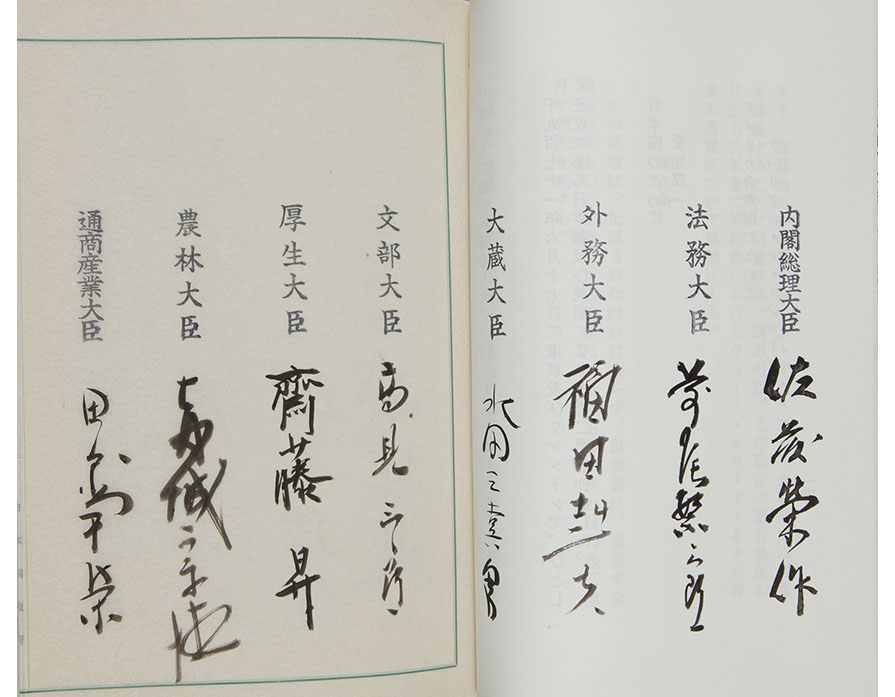 内閣総理大臣 佐藤榮作
法務大臣 前尾繁三郎
外務大臣 福田赳夫
大蔵大臣 水田三喜男
文部大臣 高見三郎
厚生大臣 齋藤昇
農林大臣 赤城宗徳
通商産業大臣 田中角榮